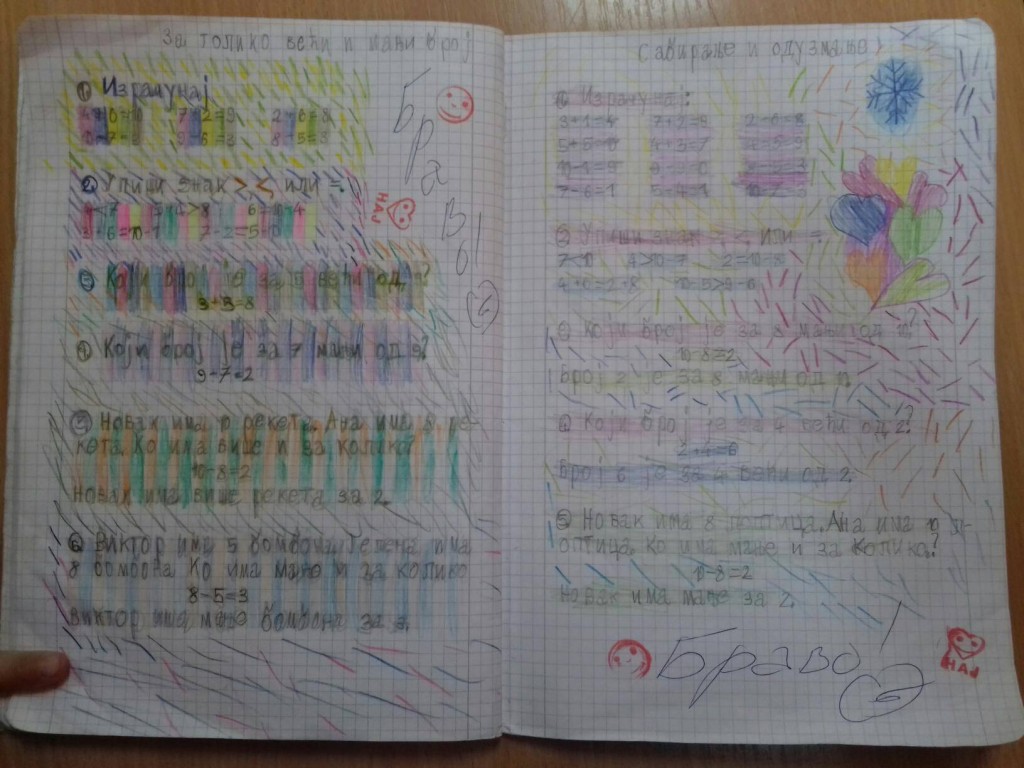 За толико већи и мањи број
① Израчунај
4+6=10 7+2=9 2+6=8
10-7=3 9-6=3 8-5=3
② Упиши знак >, <, или =.
3+6=10-1 7-2=5
③ Који број је за 5 већи од
=8
④ Који број је за 7 мањи од 9?
9-7=2
⑤ Новак има 10 рекета. Ана има 8 ре-
кета. Ко има више и за колико?
10-8=2
Новак има више рекета за 2.
⑥ Виктор има 5 бомбона. Јелена има
8 бомбона Ко има мање и за колико
8-5=3
Виктор има мање бомбона за 3.
Браво!
НАЈ
Сабирање и одузимање
① Израчунај:
3+1=4 7+2=9 2+6=8
5+5=10 4+3=7
10-1=9
7-6=1 5-4=1 10-7=3
② Упиши знак >, <, или =.
7<10 4>10-7 2=10-8
4+6=2+8 10-5>9-6
③ Који број је за 8 мањи од 10?
10-8=2
Број 2 је за 8 мањи од 10.
④ Који број је за 4 већи од 2?
2+4=6
Број 6 је за 4 већи од 2.
⑤ Новак има 8 лоптица. Ана има 10 л-
оптица. Ко има мање и за колико?
10-8=2
Новак има мање за 2.
Браво!
НАЈ